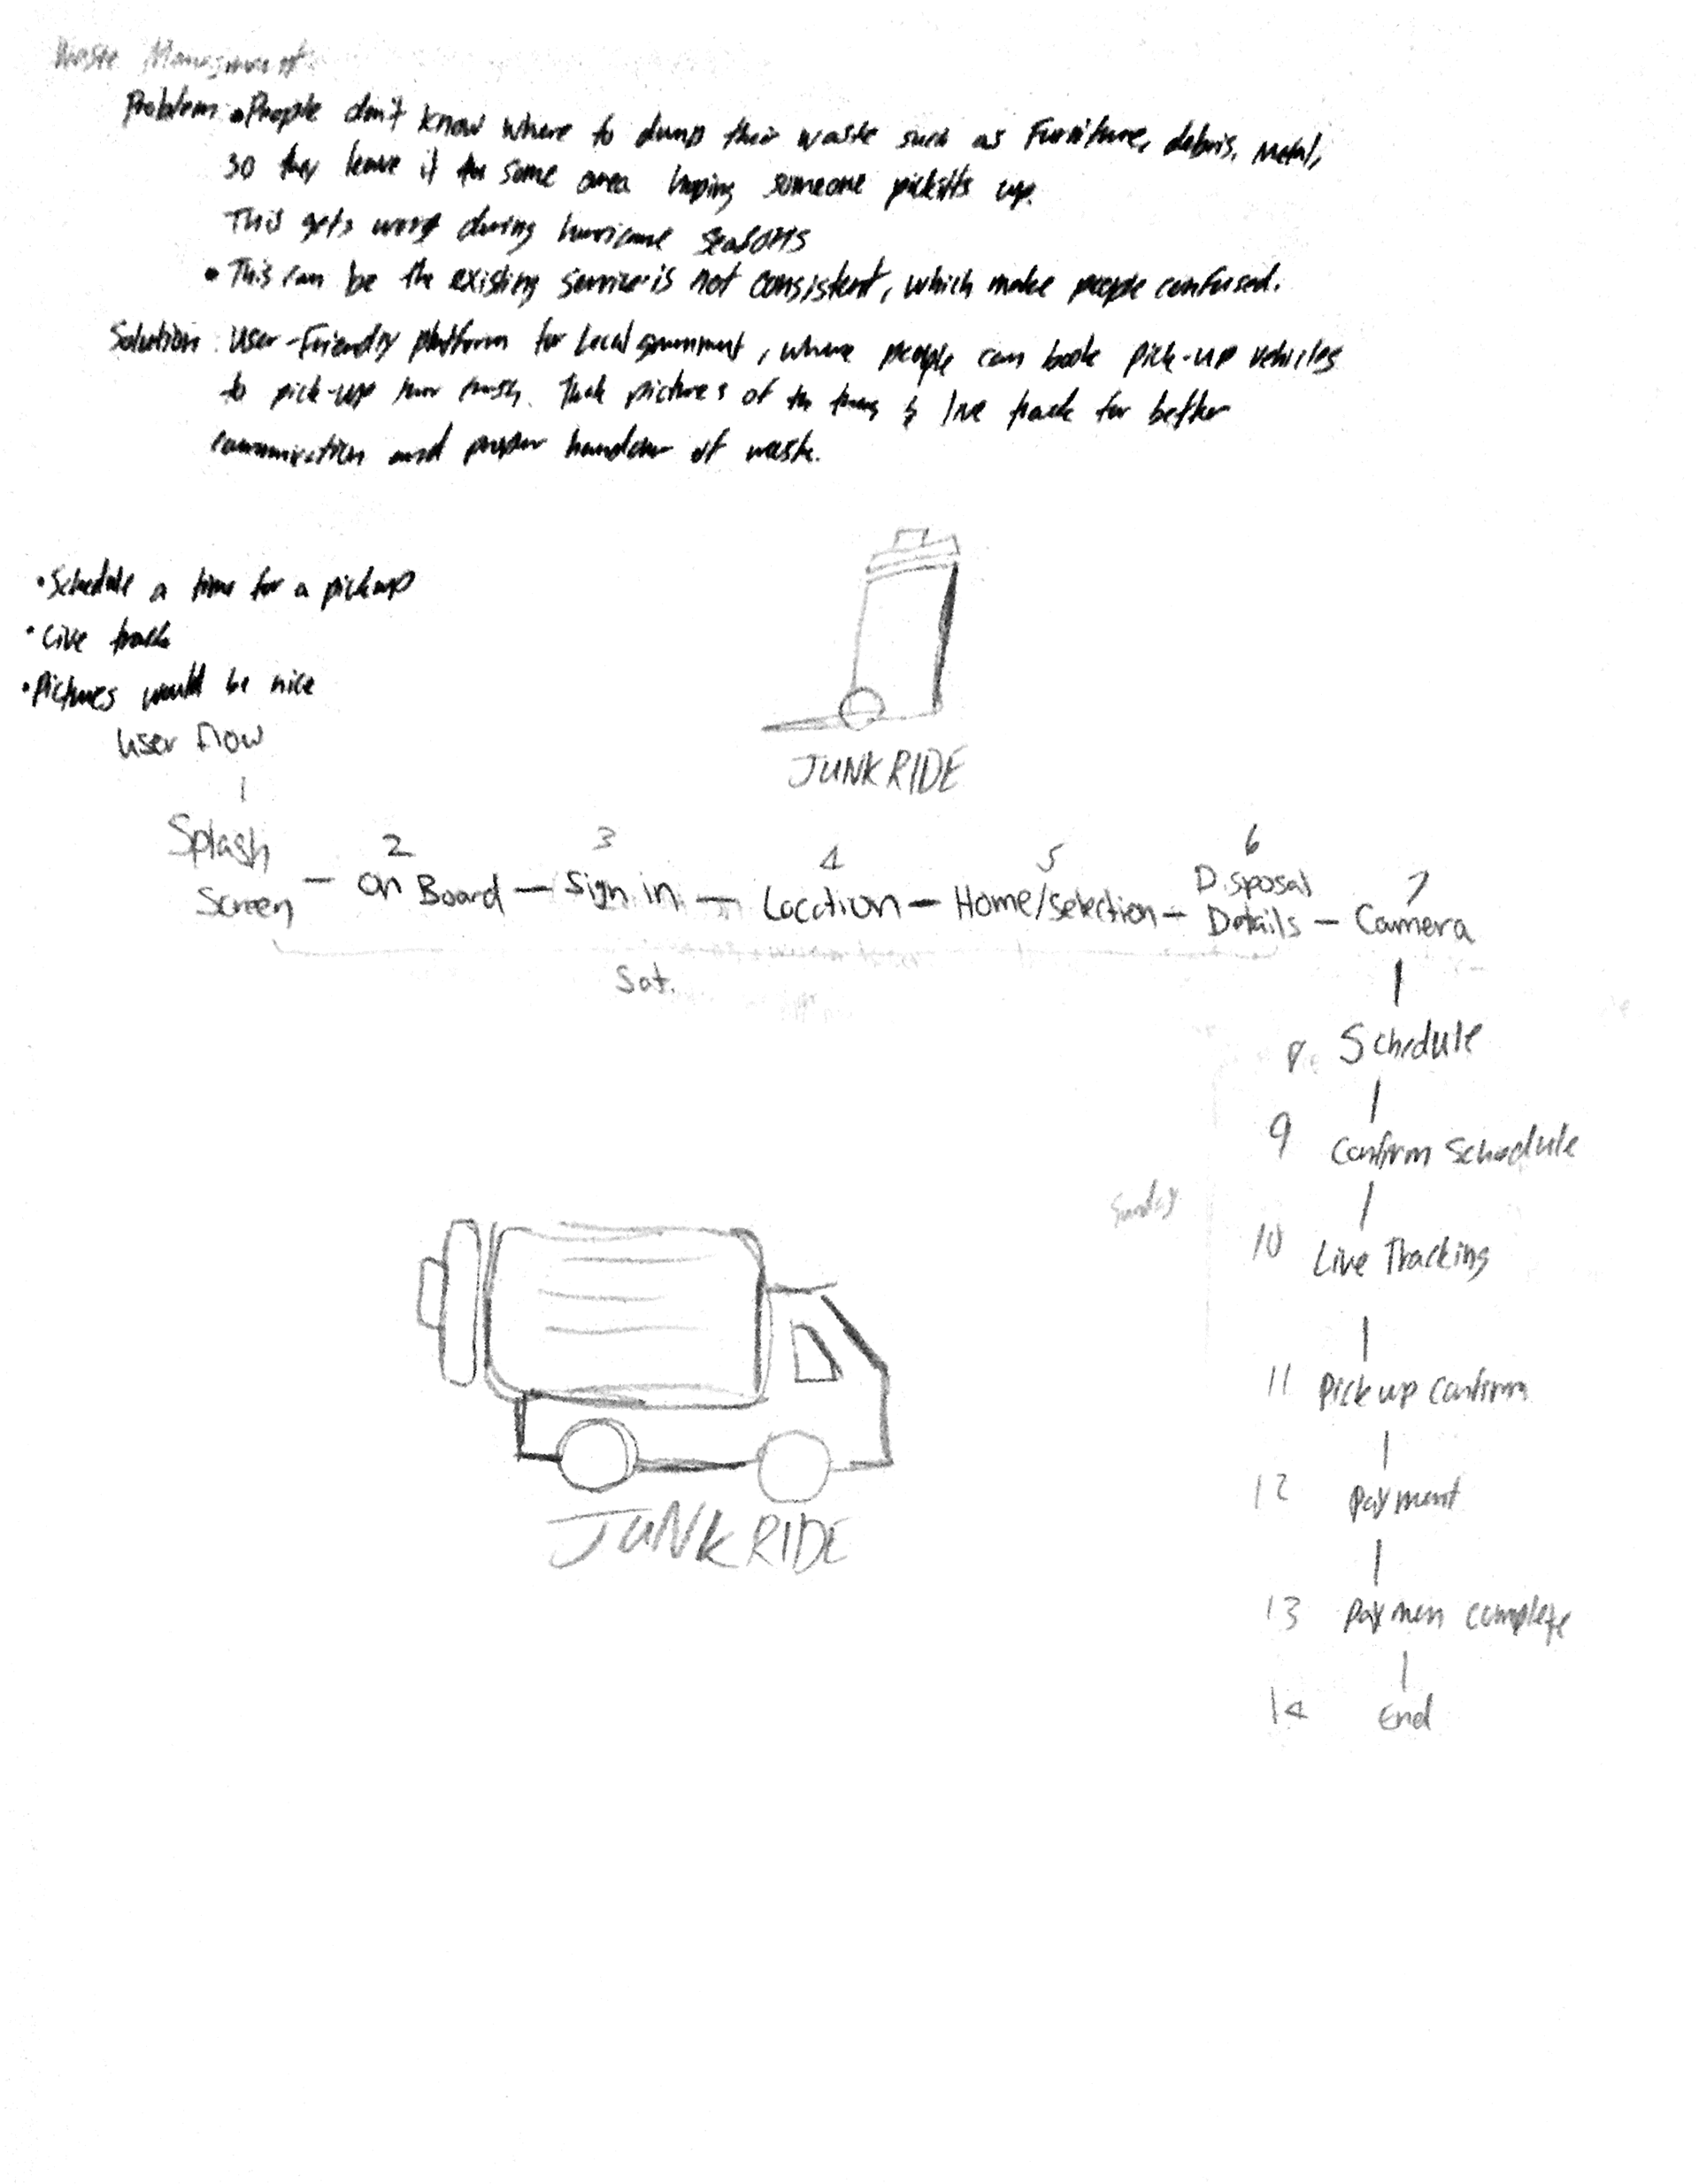 Waste Managment
Problem • People don't know where to dump their waste such as Furniture, debris, Metal,
so they leave it some area hoping someone picks up.
This gets worst during hurricane seasons
• This can be the existing service is not consistent, which make people confused.
Solution: User-Friendly platform for Local , where people can book pick-up vehicles
to pick-up their trash. pictures of the & live track for better
and proper handover of waste.
• Schedule a time for a pickup
• Live track
• Pictures would be nice
JUNKRIDE
User flow
1 2 3 4 5 6 7
Splash Screen — On Board — Sign in — Location — Home/selection — Disposal Details — Camera
Sat.
8. Schedule
9 Confirm Schedule
Sunday
10 Live Tracking
11 Pick up confirm
12 Payment
13 Paymen complete
14 End
JUNKRIDE